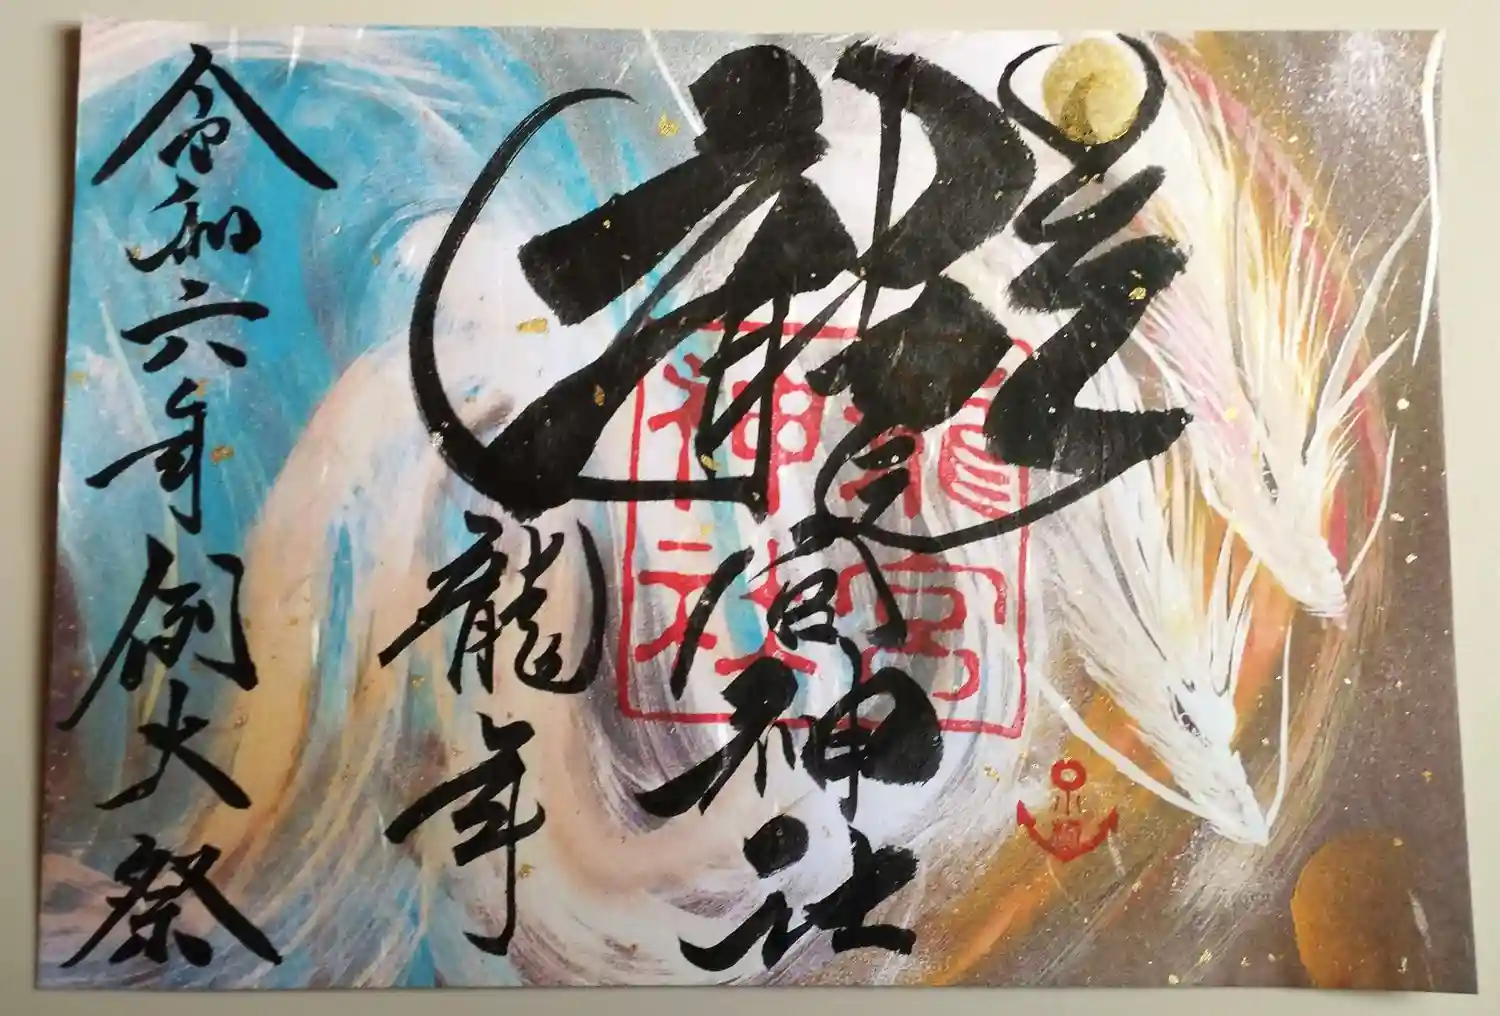 龍宮神社
龍年
令和六年例大祭
龍宮
神社
小樽